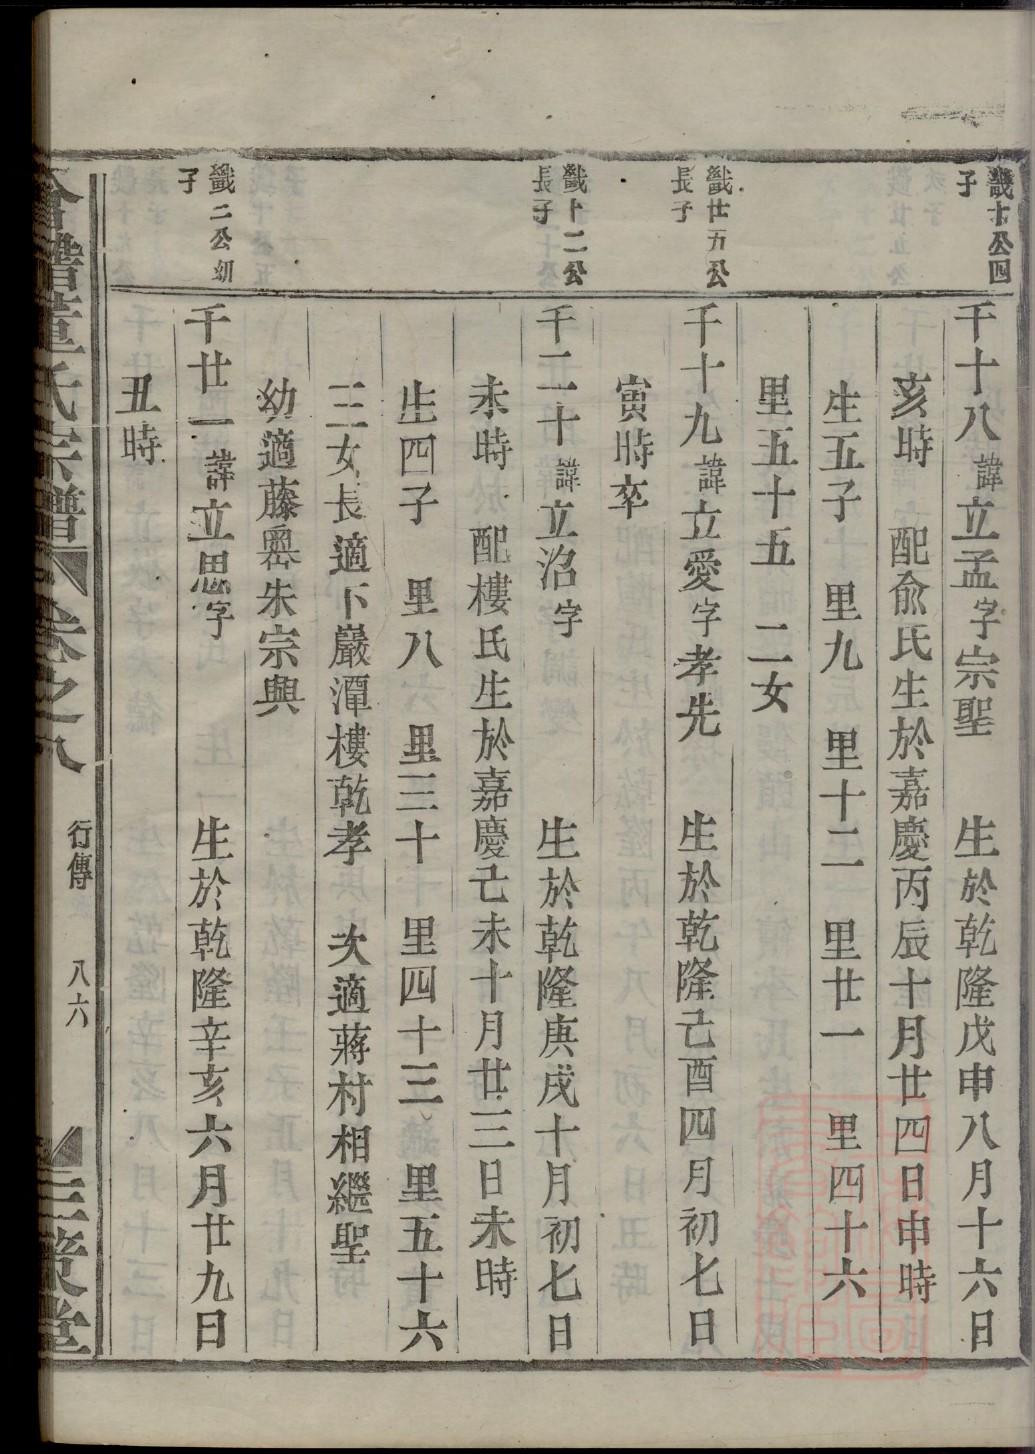 鐵十公四
子
千十八諱立孟字宗聖　生於乾隆戊申八月十六日
亥時　配俞氏生於嘉慶丙辰十月廿四日申時
生五子十　里九　里十二　里廿一　里四十六
里五十五　二女
鐵廿五公
長子
千十九諱立愛字孝先　生於乾隆己酉四月初七日
寅時卒
鐵卜二公
長子
千二十諱立沼字　生於乾隆庚戌十月初七日
未時　配樓氏生於嘉慶己未十月廿三日未時
生四子　里八　里三十　里四十三　里五十六
三女長適下巖潭樓乾孝　次適蔣村相繼聖
幼適藤嶴朱宗興
鐵二公幼
子
千廿一諱立思字　生於乾隆辛亥六月廿九日
丑時
合譜董氏宗譜　卷之八　行傳　八六　三策堂